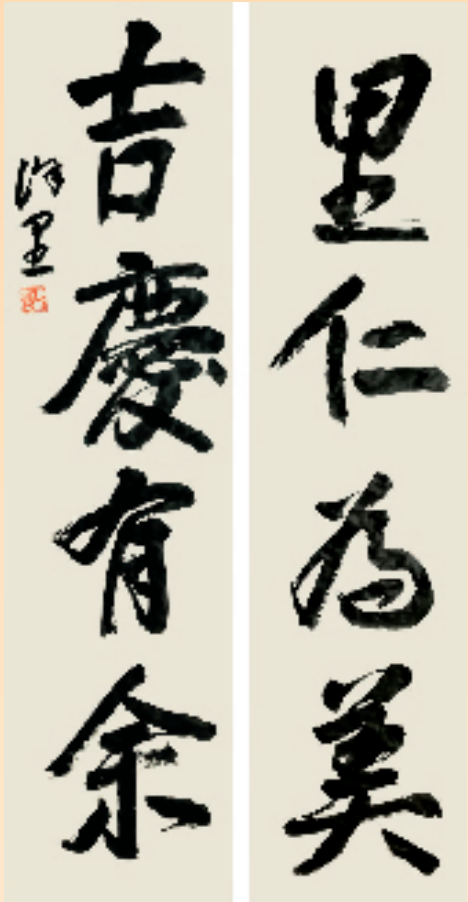 里仁為美
吉慶有余
许里